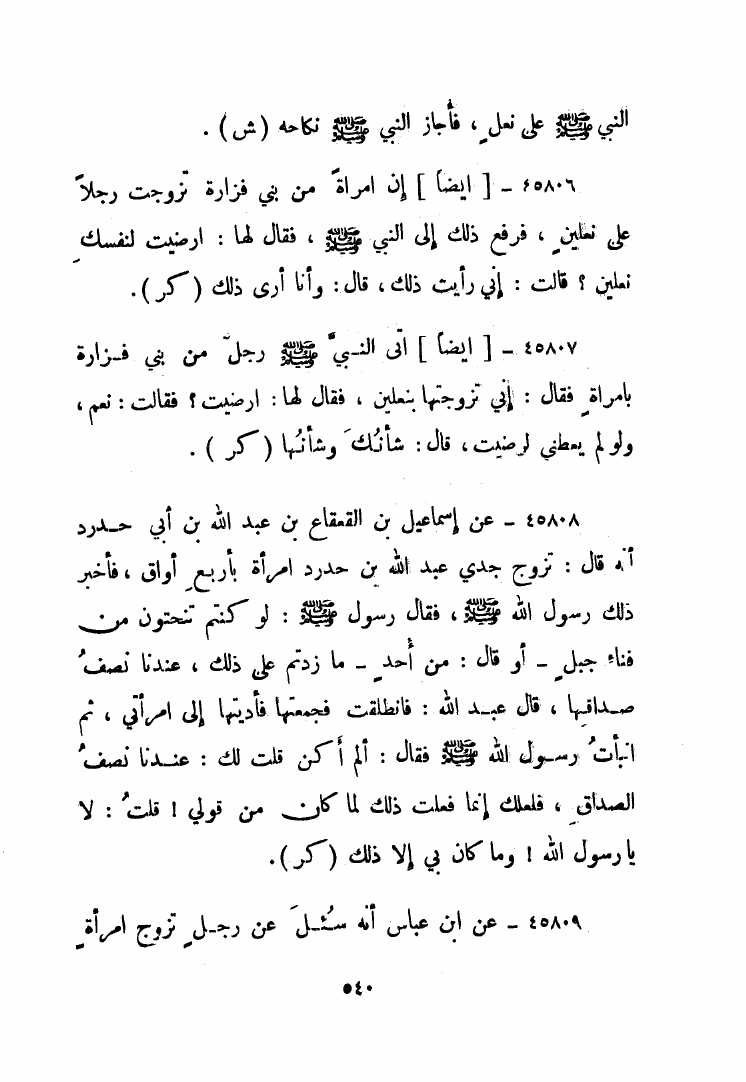 النبي ﷺ على نعلٍ ، فأجاز النبي ﷺ نكاحه (ش) .
٤٥٨٠٦ - [ ايضاً ] إن امراةً من بني فزارة تزوجت رجلاً
على نعلينِ ، فرفع ذلك إلى النبي ﷺ ، فقال لها : ارضيت لنفسكِ
نعلين ؟ قالت : إني رأيت ذلك ، قال : وأنا أرى ذلك ( كر ) .
٤٥٨٠٧ - [ ايضاً ] اتى النبيَّ ﷺ رجلٌ من بني فزارة
بامراةٍ فقال : إني تزوجتها بنعلين ، فقال لها : ارضيت ؟ فقالت : نعم ،
ولو لم يعطني لرضيت ، قال : شأنُكَ وشأنُها ( كر ) .
٤٥٨٠٨ - عن إسماعيل بن القعقاع بن عبد الله بن أبي حدرد
أنه قال : تزوج جدي عبد الله بن حدرد امرأة بأربعِ أواق ، فأخبر
ذلك رسول الله ﷺ ، فقال رسول ﷺ : لو كنتم تنحتون من
فناء جبلٍ - أو قال : من أُحدٍ - ما زدتم على ذلك ، عندنا نصفُ
صداقها ، قال عبد الله : فانطلقت فجمعتها فأديتها إلى امرأتي ، ثم
انبأتُ رسول الله ﷺ فقال : ألم أَكن قلت لك : عندنا نصفُ
الصداقِ ، فلعلك إنما فعلت ذلك لما كان من قولي ! قلتُ : لا
يا رسول الله ! وما كان بي إلا ذلك ( كر ) .
٤٥٨٠٩ - عن ابن عباس أنه سُئلَ عن رجلٍ تزوج امرأةٍ
٥٤٠